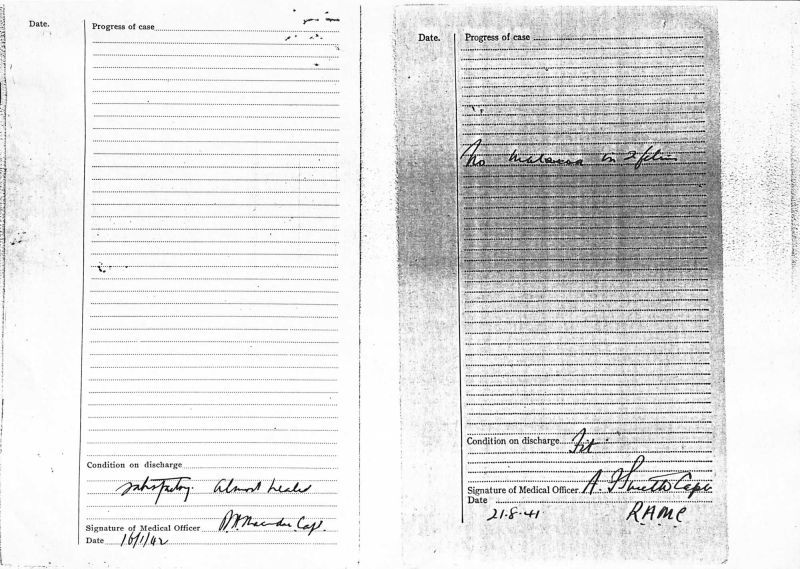 Date. Progress of case
Condition on discharge
satisfactory. almost healed
Signature of Medical Officer Capt.
Date 16/1/42
Date. Progress of case
No malaria in 2 films
Condition on discharge Fit
Signature of Medical Officer A. Capt
Date
21.8.41 RAMC